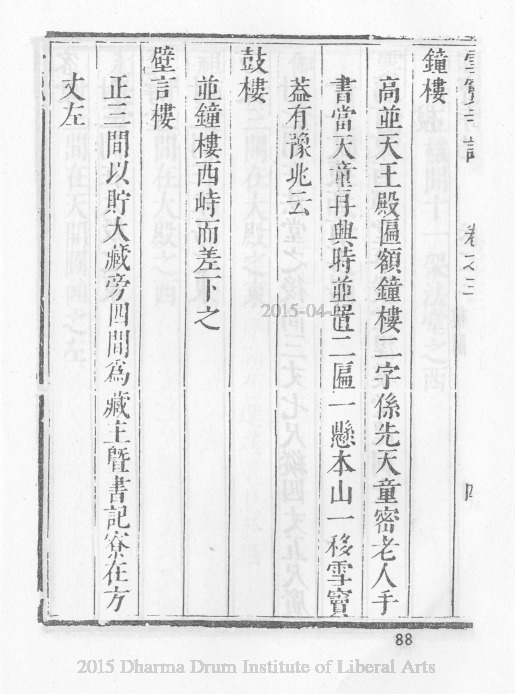 雪竇寺誌 卷之三 四
鐘樓
高並天王殿匾額鐘樓二字係先天童密老人手
書當天童再興時並置二匾一懸本山一移雪竇
蓋有豫兆云
鼓樓
並鐘樓西峙而差下之
壁言樓
正三間以貯大藏旁四間為藏主暨書記寮在方
丈左
88
2015-04-
2015 Dharma Drum Institute of Liberal Arts